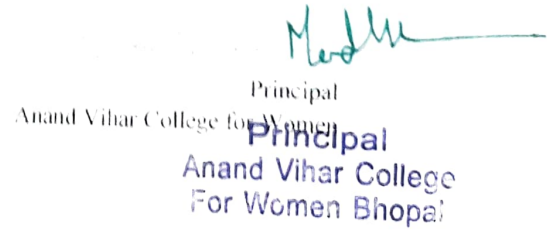 Principal
Anand Vihar College for Women
Principal
Anand Vihar College
For Women Bhopal